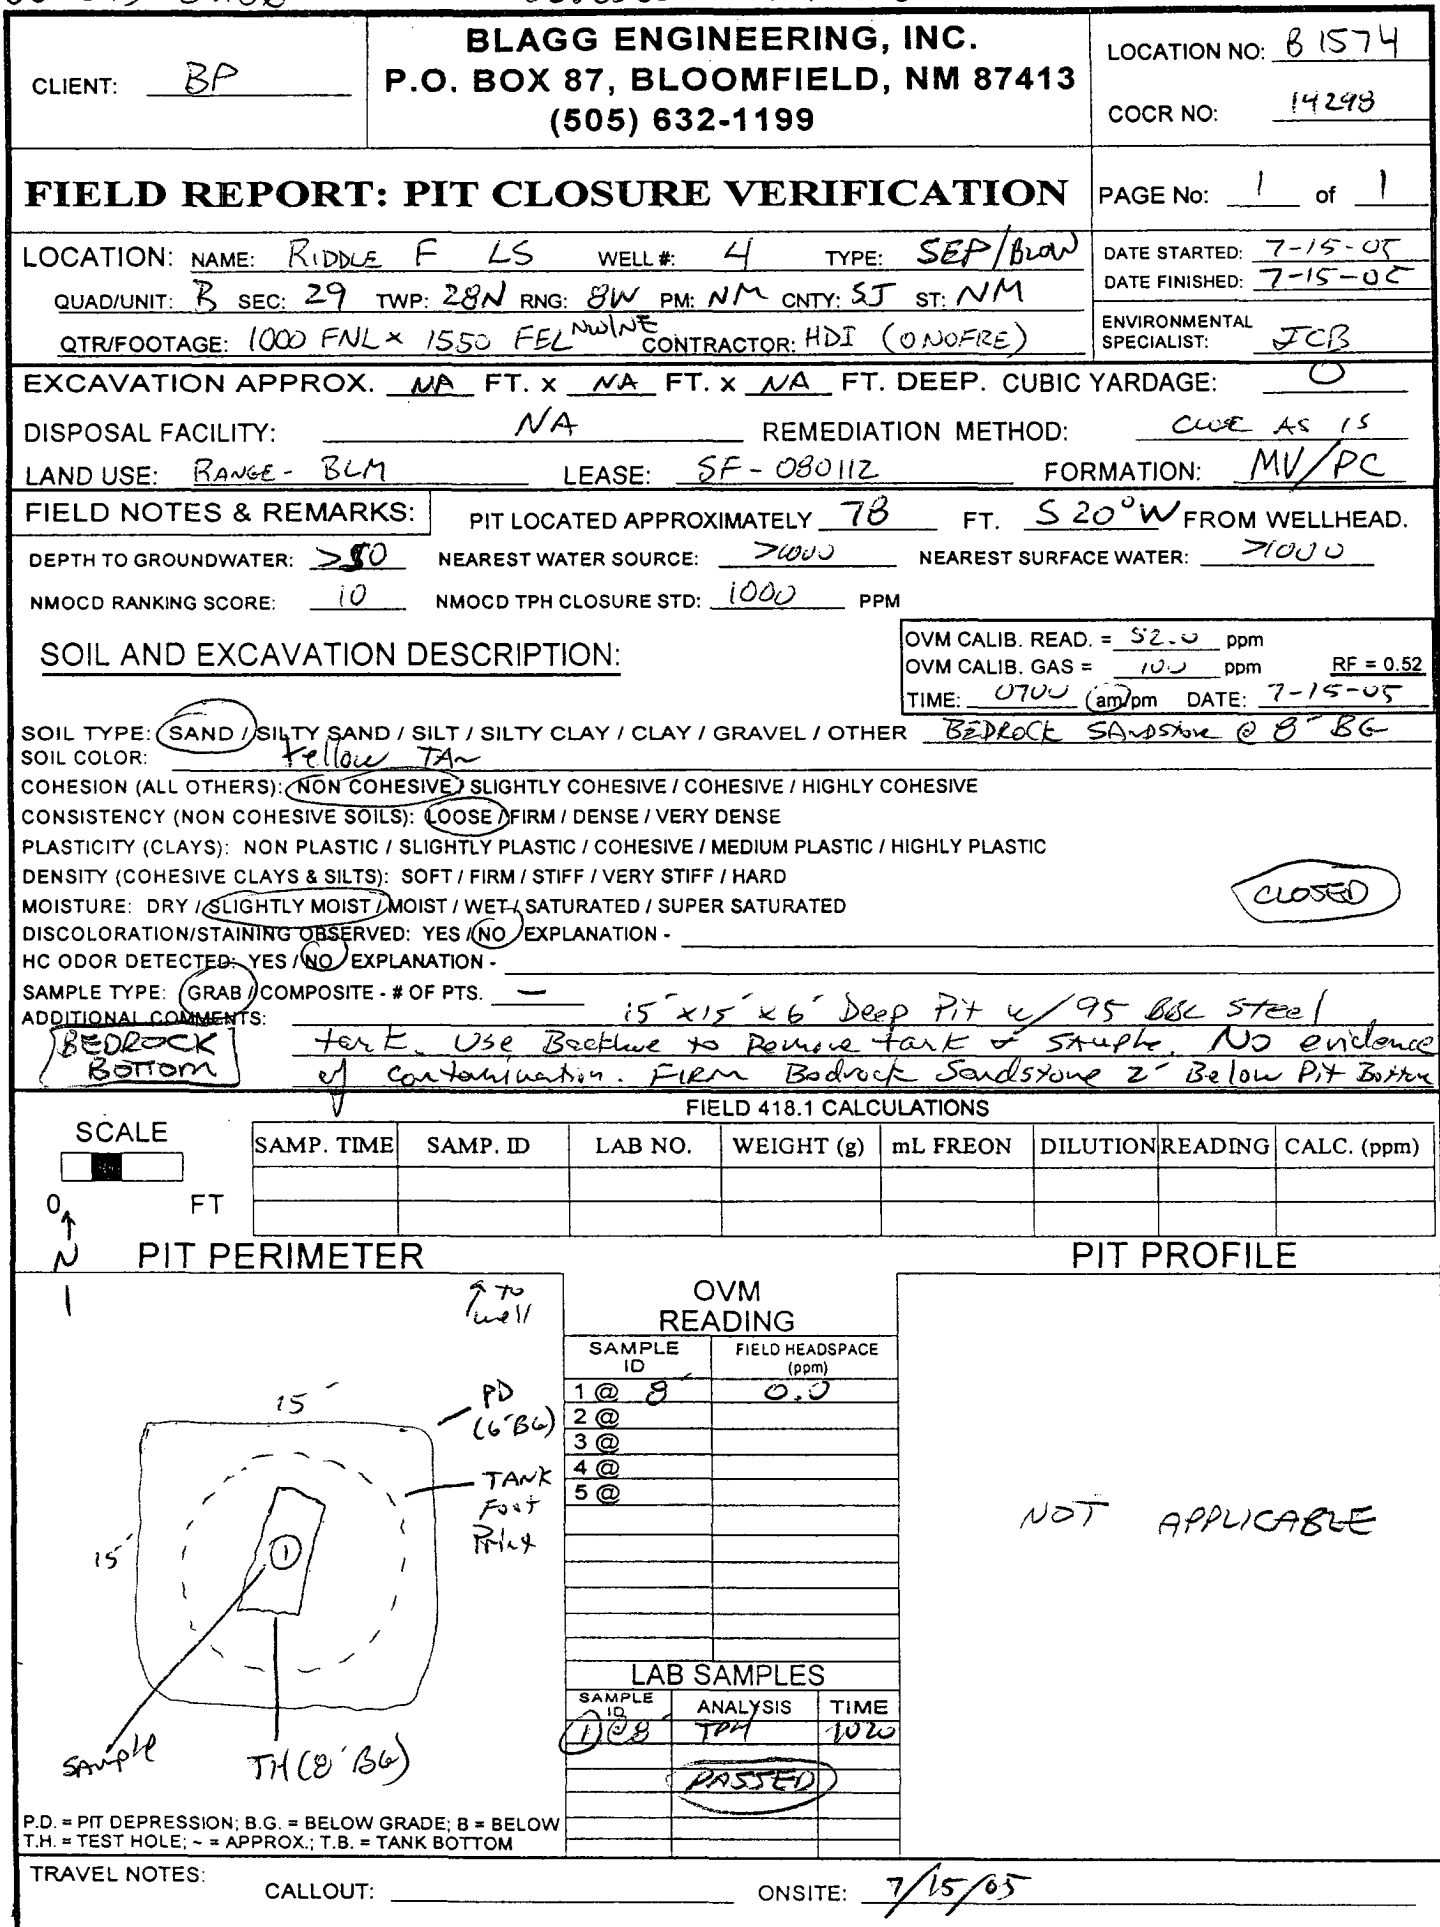 BLAGG ENGINEERING, INC.
P.O. BOX 87, BLOOMFIELD, NM 87413
(505) 632-1199
CLIENT: BP
LOCATION NO: B1574
COCR NO: 14298
FIELD REPORT: PIT CLOSURE VERIFICATION
PAGE No: 1 of 1
LOCATION: NAME: RIDDLE F LS WELL #: 4 TYPE: SEP/BLOW
QUAD/UNIT: B SEC: 29 TWP: 28N RNG: 8W PM: NM CNTY: SJ ST: NM
QTR/FOOTAGE: 1000 FNL x 1550 FEL NW/NE CONTRACTOR: HDI (ONOFRE)
DATE STARTED: 7-15-05
DATE FINISHED: 7-15-05
ENVIRONMENTAL
SPECIALIST: JCB
EXCAVATION APPROX. NA FT. x NA FT. x NA FT. DEEP. CUBIC YARDAGE: 0
DISPOSAL FACILITY: NA REMEDIATION METHOD: CLOSE AS IS
LAND USE: RANGE - BLM LEASE: SF-080112 FORMATION: MV/PC
FIELD NOTES & REMARKS: PIT LOCATED APPROXIMATELY 78 FT. S20°W FROM WELLHEAD.
DEPTH TO GROUNDWATER: >50 NEAREST WATER SOURCE: >1000 NEAREST SURFACE WATER: >1000
NMOCD RANKING SCORE: 10 NMOCD TPH CLOSURE STD: 1000 PPM
SOIL AND EXCAVATION DESCRIPTION:
OVM CALIB. READ. = 52.0 ppm
OVM CALIB. GAS = 100 ppm RF = 0.52
TIME: 0700 am/pm DATE: 7-15-05
SOIL TYPE: SAND / SILTY SAND / SILT / SILTY CLAY / CLAY / GRAVEL / OTHER BEDROCK SANDSTONE @ 8' BG
SOIL COLOR: Yellow TAN
COHESION (ALL OTHERS): NON COHESIVE / SLIGHTLY COHESIVE / COHESIVE / HIGHLY COHESIVE
CONSISTENCY (NON COHESIVE SOILS): LOOSE / FIRM / DENSE / VERY DENSE
PLASTICITY (CLAYS): NON PLASTIC / SLIGHTLY PLASTIC / COHESIVE / MEDIUM PLASTIC / HIGHLY PLASTIC
DENSITY (COHESIVE CLAYS & SILTS): SOFT / FIRM / STIFF / VERY STIFF / HARD
MOISTURE: DRY / SLIGHTLY MOIST / MOIST / WET / SATURATED / SUPER SATURATED
CLOSED
DISCOLORATION/STAINING OBSERVED: YES / NO EXPLANATION -
HC ODOR DETECTED: YES / NO EXPLANATION -
SAMPLE TYPE: GRAB / COMPOSITE - # OF PTS. —
ADDITIONAL COMMENTS: 15' x 15' x 6' Deep Pit w/ 95 BBL Steel
tank. Use Backhoe to Remove tank & sample. No evidence
of contamination. FIRM Bedrock Sandstone 2' Below Pit Bottom
BEDROCK
BOTTOM
FIELD 418.1 CALCULATIONS
SCALE
0 FT
SAMP. TIME SAMP. ID LAB NO. WEIGHT (g) mL FREON DILUTION READING CALC. (ppm)
N
PIT PERIMETER
PIT PROFILE
↑ to
well
OVM
READING
SAMPLE
ID
FIELD HEADSPACE
(ppm)
1 @ 8' 0.0
2 @
3 @
4 @
5 @
15'
PD
(6' BG)
TANK
Foot
Print
15'
1
sample
TH (8' BG)
NOT APPLICABLE
LAB SAMPLES
SAMPLE
ID
ANALYSIS TIME
1 @ 8' TPH 1020
PASSED
P.D. = PIT DEPRESSION; B.G. = BELOW GRADE; B = BELOW
T.H. = TEST HOLE; ~ = APPROX.; T.B. = TANK BOTTOM
TRAVEL NOTES:
CALLOUT: ONSITE: 7/15/05